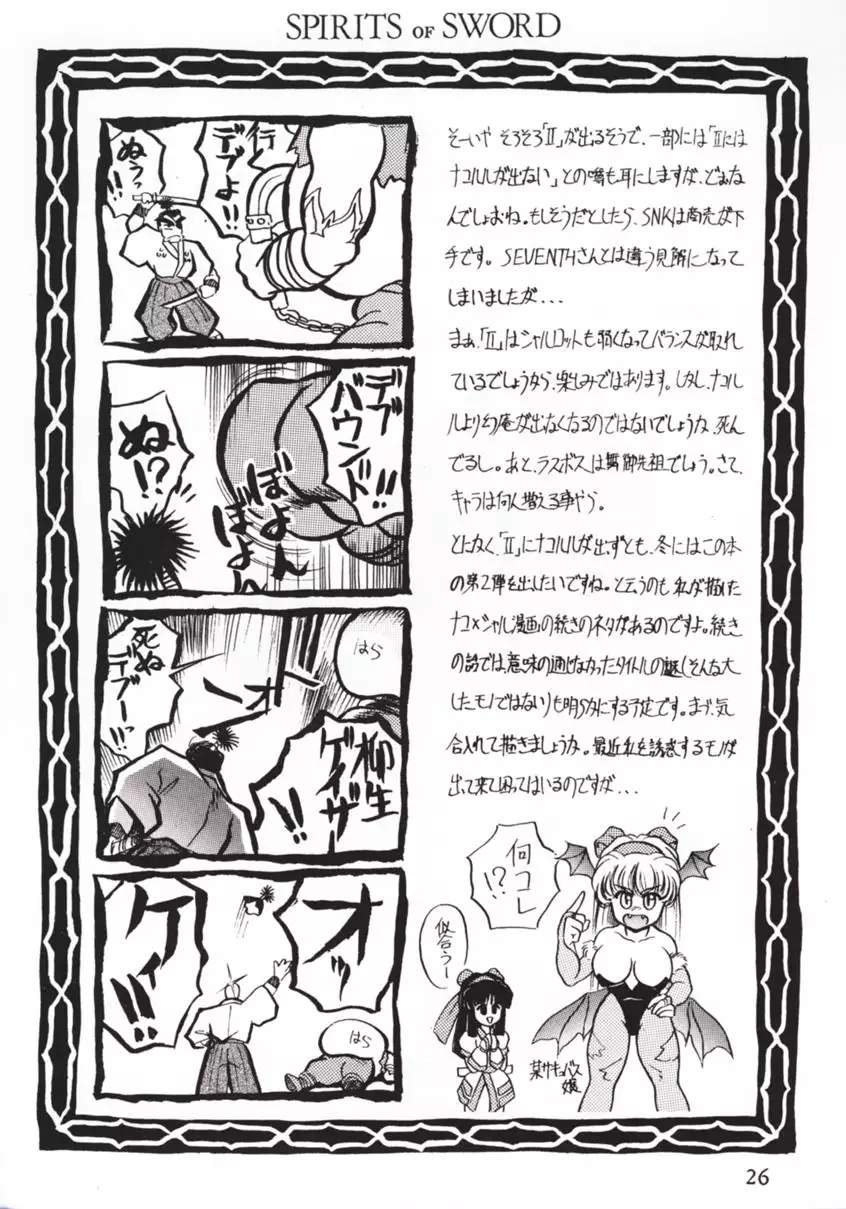 SPIRITS OF SWORD
行くデブよ!!
ぬうっ!!
デブバウンド!!
ぼよんぼよん
ぬ!?
はら
オーン
死ぬデブー!!
柳生ゲイザー!!
オッ
ケイ!!
はら
そーいや そろそろ「II」が出るそうで、一部には「IIには
ナコルルが出ない」との噂も耳にしますが、どぉな
んでしょおね。もしそうだとしたら、SNKは商売が下
手です。SEVENTHさんとは違う見解になって
しまいましたが...
まぁ、「II」はシャルロットも弱くなってバランスが取れ
ているでしょうから、楽しみではあります。しかし、ナコル
ルより幻庵が出なくなるのではないでしょうか、死ん
でるし。あと、ラスボスは舞御先祖でしょう。さて、
キャラは何人増える事やら。
とにかく、「II」にナコルルが出ずとも、冬にはこの本
の第2弾を出したいですね。と云うのも私が描いた
ナコ×シャル漫画の続きのネタがあるのですよ。続き
の話では、意味の通じなかったタイトルの謎(そんな大
したモノではない)も明らかにする予定です。まぁ、気
合入れて描きましょうか。最近私を誘惑するモノが
出て来て困ってはいるのですが...
何コレ!?
似合うー
某サキュバス嬢
26